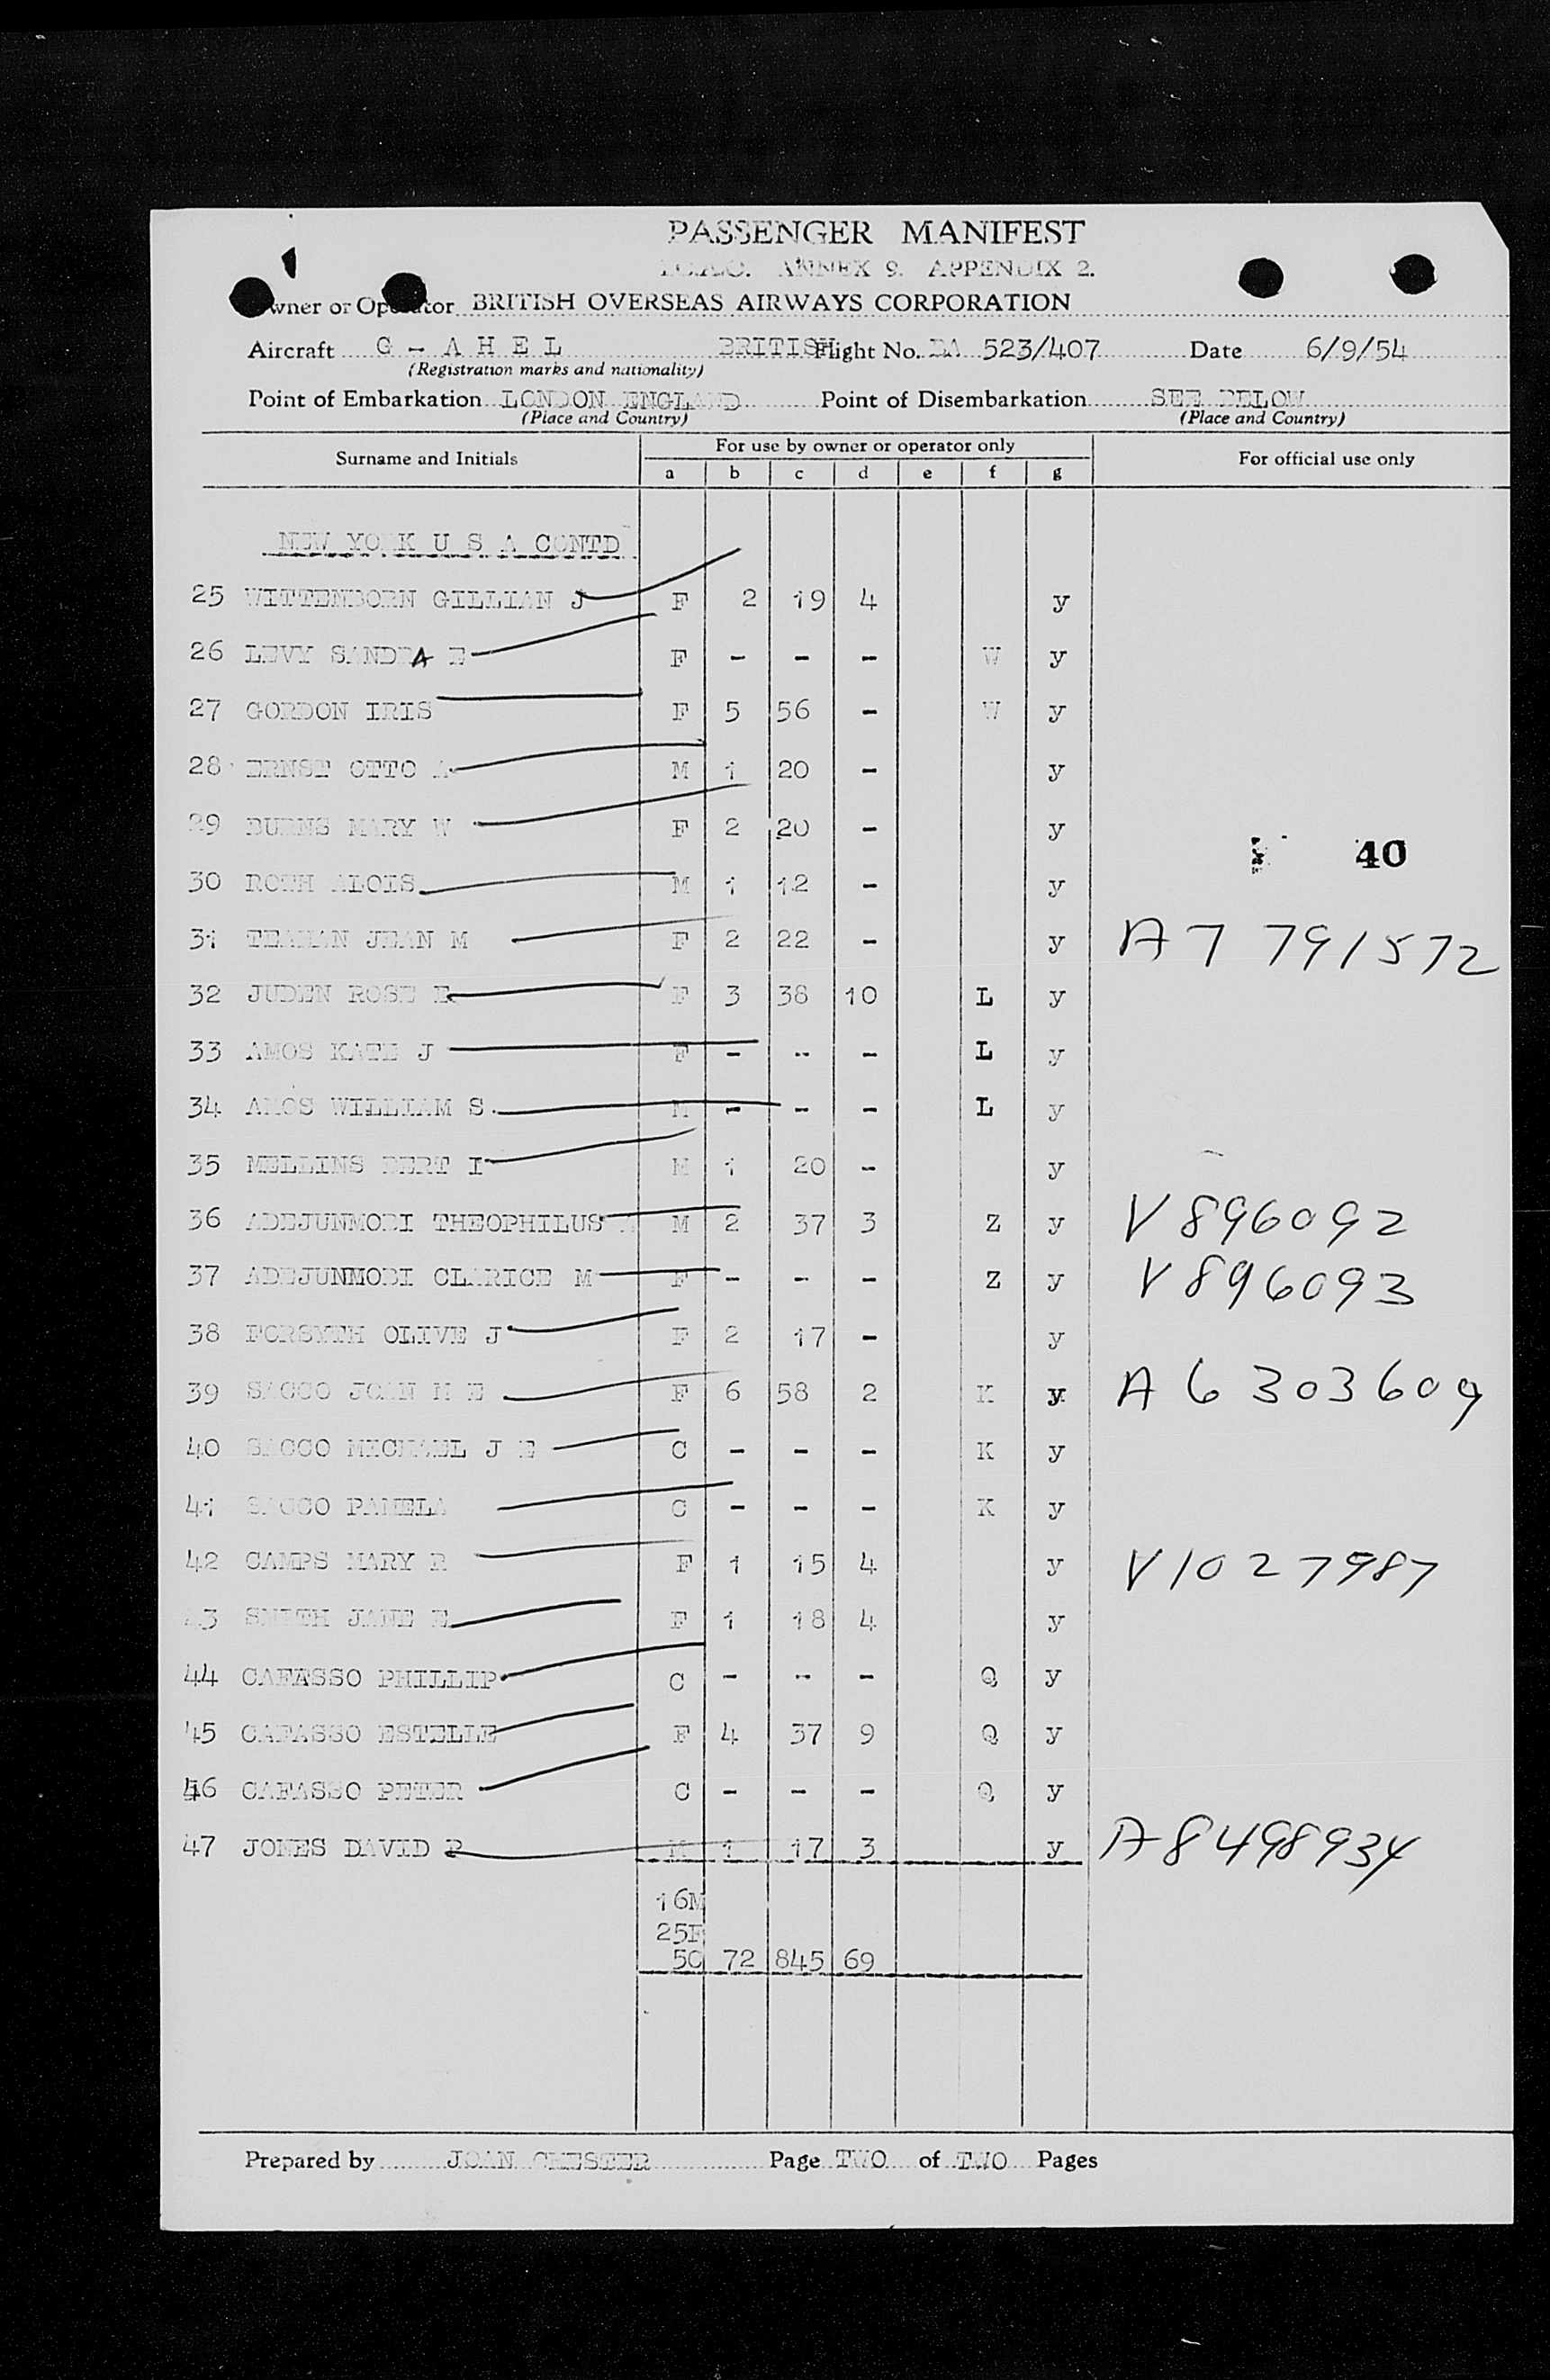 PASSENGER MANIFEST
I.C.A.O. ANNEX 9. APPENDIX 2.
Owner or Operator BRITISH OVERSEAS AIRWAYS CORPORATION
Aircraft G - A H E L BRITISH Flight No. BA 523/407 Date 6/9/54
(Registration marks and nationality)
Point of Embarkation LONDON ENGLAND Point of Disembarkation SEE BELOW
(Place and Country) (Place and Country)
Surname and Initials For use by owner or operator only For official use only
a b c d e f g
NEW YORK U S A CONTD
25 WITTENBORN GILLIAN J F 2 19 4 y
26 LEVY SANDRA E F - - - W y
27 GORDON IRIS F 5 56 - W y
28 ERNST OTTO A M 1 20 - y
29 BURNS MARY W F 2 20 - y
40
30 ROTH ALOIS M 1 12 - y
31 TEAHAN JEAN M F 2 22 - y A7 791572
32 JUDEN ROSE E F 3 38 10 L y
33 AMOS KATE J F - - - L y
34 AMOS WILLIAM S. M - - - L y
35 MELLINS BERT I M 1 20 - y
36 ADEJUNMOBI THEOPHILUS A M 2 37 3 Z y V896092
37 ADEJUNMOBI CLARICE M F - - - Z y V896093
38 FORSYTH OLIVE J F 2 17 - y
39 SACCO JOAN M E F 6 58 2 K y A6 303609
40 SACCO MICHAEL J E C - - - K y
41 SACCO PAMELA C - - - K y
42 CAMPS MARY R F 1 15 4 y V1027987
43 SMITH JANE E F 1 18 4 y
44 CAFASSO PHILLIP C - - - Q y
45 CAFASSO ESTELLE F 4 37 9 Q y
46 CAFASSO PETER C - - - Q y
47 JONES DAVID P M 1 17 3 y A8498934
16M
25F
50 72 845 69
Prepared by JOAN CHESTER Page TWO of TWO Pages